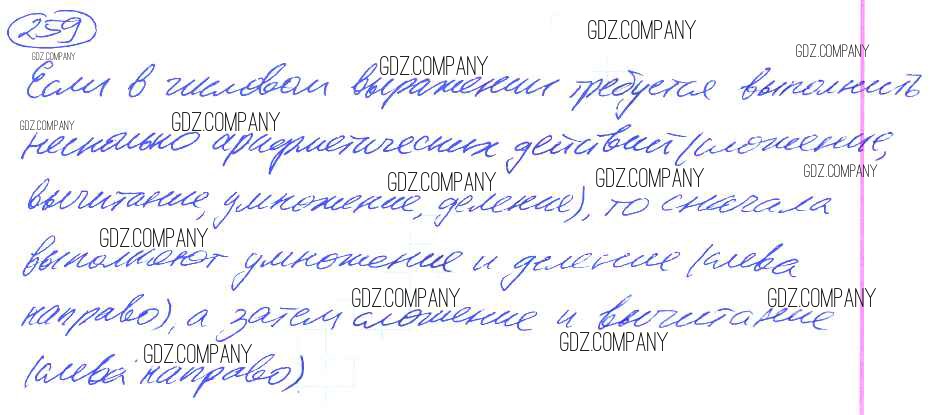 259
Если в числовом выражении требуется выполнить
несколько арифметических действий (сложение,
вычитание, умножение, деление), то сначала
выполняют умножение и деление (слева
направо), а затем сложение и вычитание
(слева направо)
GDZ.COMPANY
GDZ.COMPANY
GDZ.COMPANY
GDZ.COMPANY
GDZ.COMPANY
GDZ.COMPANY
GDZ.COMPANY
GDZ.COMPANY
GDZ.COMPANY
GDZ.COMPANY
GDZ.COMPANY
GDZ.COMPANY
GDZ.COMPANY
GDZ.COMPANY